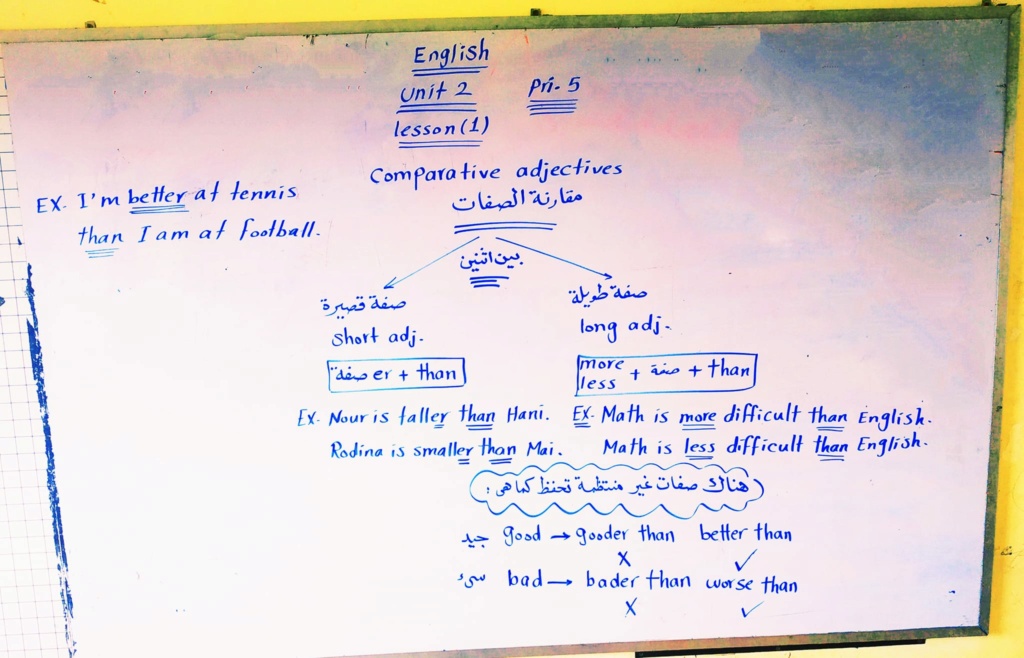 English
Unit 2 Pri. 5
lesson (1)
Comparative adjectives
مقارنة الصفات
EX. I'm better at tennis
than I am at football.
بين اثنين
صفة قصيرة
short adj.
صفة er + than
صفة طويلة
long adj.
more
less + صفة + than
Ex. Nour is taller than Hani.
Rodina is smaller than Mai.
Ex. Math is more difficult than English.
Math is less difficult than English.
هناك صفات غير منتظمة تحفظ كما هى :
جيد good → gooder than better than
X ✓
سىء bad → bader than worse than
X ✓